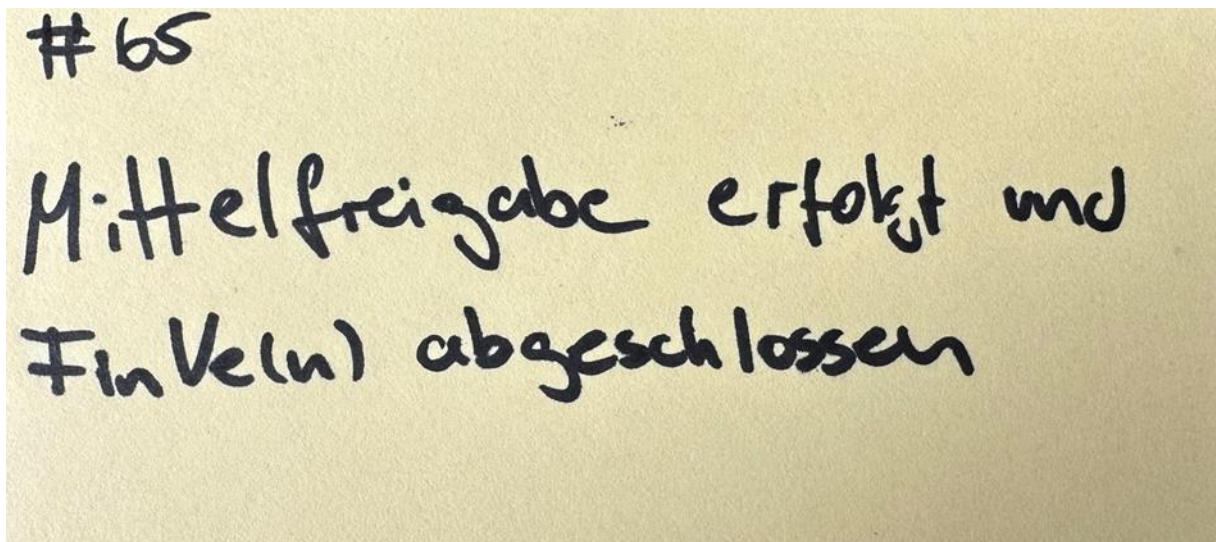 #65
Mittelfreigabe erfolgt und
FinVe(n) abgeschlossen